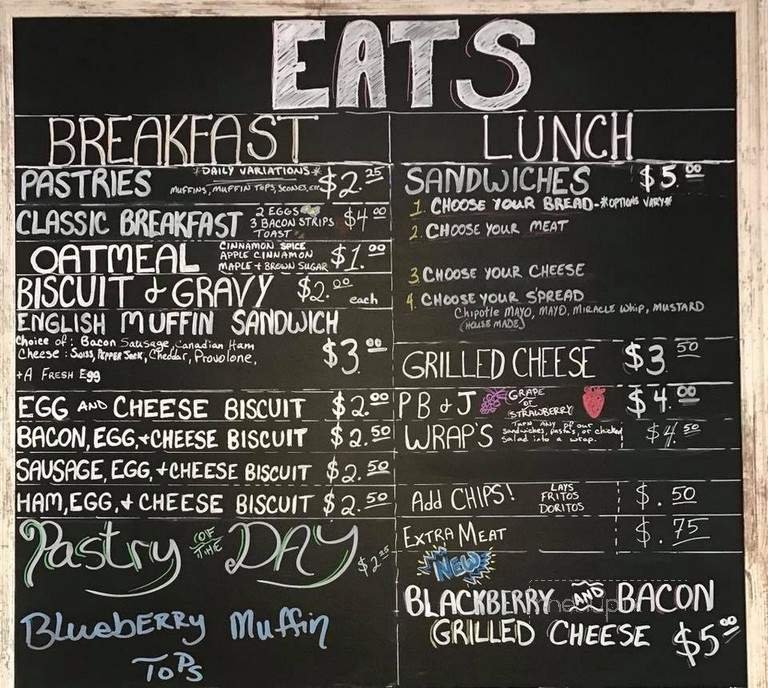 EATS
BREAKFAST
PASTRIES *DAILY VARIATIONS* $2.25
MUFFINS, MUFFIN TOPS, SCONES, ETC
CLASSIC BREAKFAST 2 EGGS $4.00
3 BACON STRIPS
TOAST
OATMEAL CINNAMON SPICE $1.00
APPLE CINNAMON
MAPLE + BROWN SUGAR
BISCUIT & GRAVY $2.00 each
ENGLISH MUFFIN SANDWICH
Choice of: Bacon Sausage, Canadian Ham $3.00
Cheese: Swiss, Pepper Jack, Cheddar, Provolone,
+A FRESH Egg
EGG AND CHEESE BISCUIT $2.00
BACON, EGG, + CHEESE BISCUIT $2.50
SAUSAGE, EGG, + CHEESE BISCUIT $2.50
HAM, EGG, & CHEESE BISCUIT $2.50
Pastry OF THE DAY $2.25
Blueberry Muffin
Tops
LUNCH
SANDWICHES $5.00
1. CHOOSE YOUR BREAD-*OPTIONS VARY*
2. CHOOSE YOUR MEAT
3. CHOOSE YOUR CHEESE
4. CHOOSE YOUR SPREAD
Chipotle MAYO, MAYO, MIRACLE Whip, MUSTARD
(HOUSE MADE)
GRILLED CHEESE $3.50
PB & J GRAPE or STRAWBERRY $4.00
WRAP'S TURN ANY OF OUR $4.50
sandwiches, pasta's, or chicken
salad into a wrap.
Add CHIPS! LAYS $.50
FRITOS
DORITOS
EXTRA MEAT $.75
NEW
BLACKBERRY AND BACON
GRILLED CHEESE $5.00